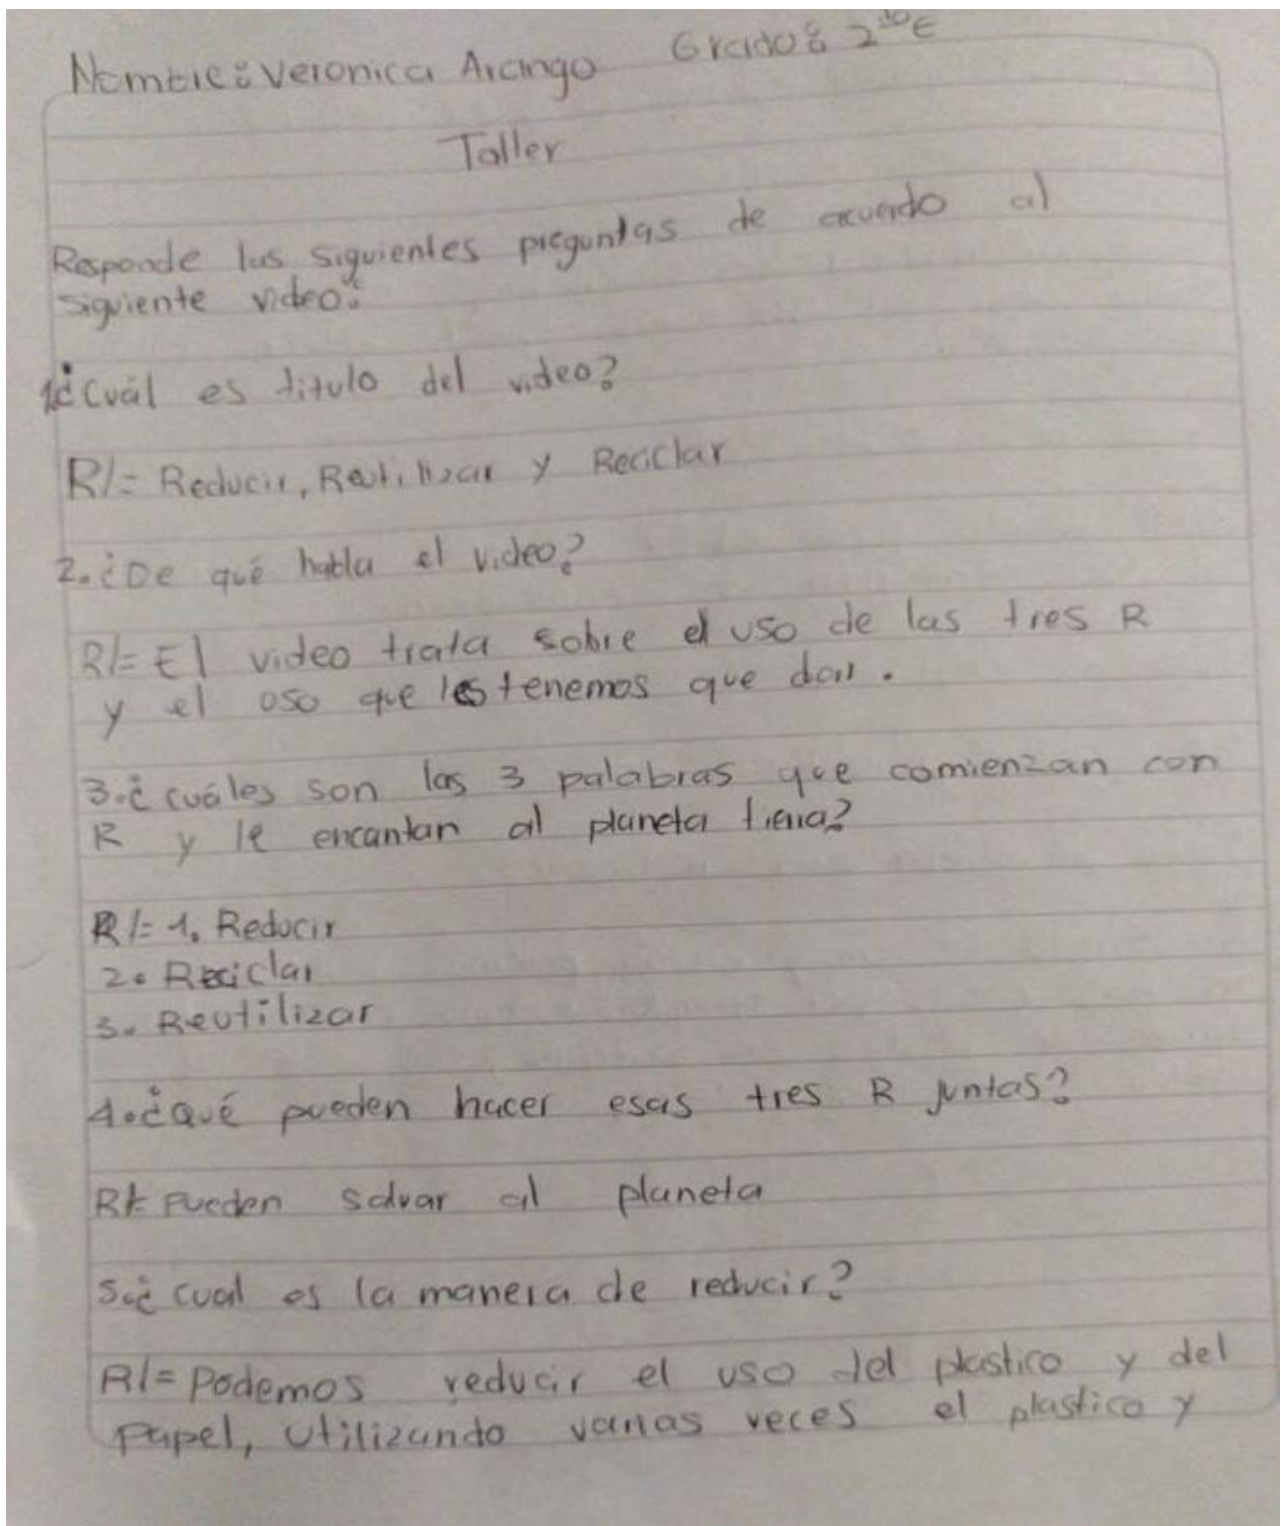 Nombre: Veronica Arango Grado: 2do E
Taller
Responde las siguientes preguntas de acuerdo al
siguiente video:
1.¿Cuál es titulo del video?
R/= Reducir, Reutilizar y Reciclar
2.¿De qué habla el video?
R/= El video trata sobre el uso de las tres R
y el oso que les tenemos que dar.
3.¿cuáles son las 3 palabras que comienzan con
R y le encantan al planeta tierra?
R/= 1. Reducir
2. Reciclar
3. Reutilizar
4.¿Qué pueden hacer esas tres R juntas?
R/= Pueden salvar al planeta
5.¿cual es la manera de reducir?
R/= Podemos reducir el uso del plastico y del
Papel, utilizando varias veces el plastico y